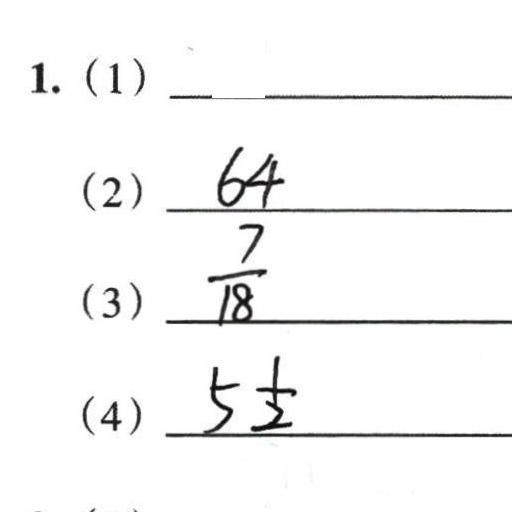 1. (1)
(2) 64
(3) 7/18
(4) 5 1/2